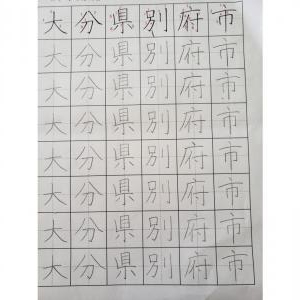 大分県別府市
大分県別府市
大分県別府市
大分県別府市
大分県別府市
大分県別府市
大分県別府市
大分県別府市